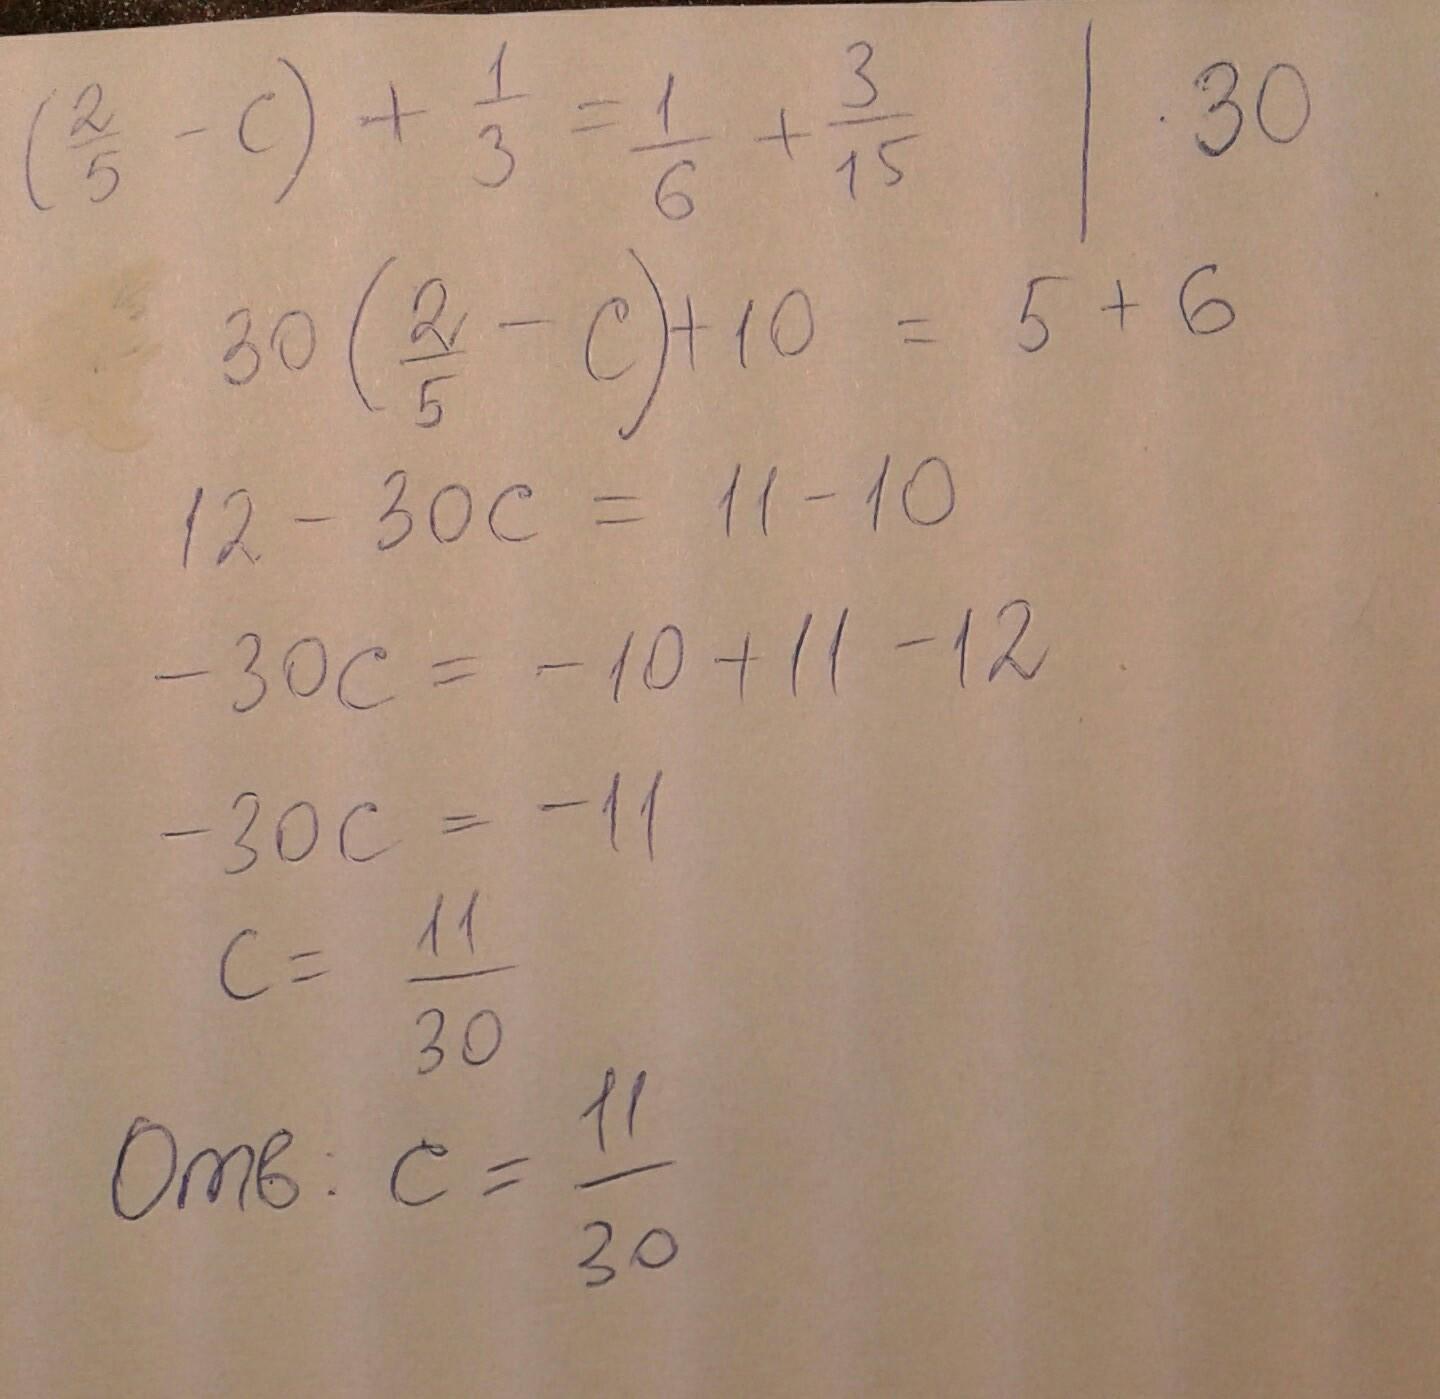 (2/5 - c) + 1/3 = 1/6 + 3/15 | · 30
30(2/5 - c) + 10 = 5 + 6
12 - 30c = 11 - 10
-30c = -10 + 11 - 12
-30c = -11
c = 11/30
Отв: c = 11/30